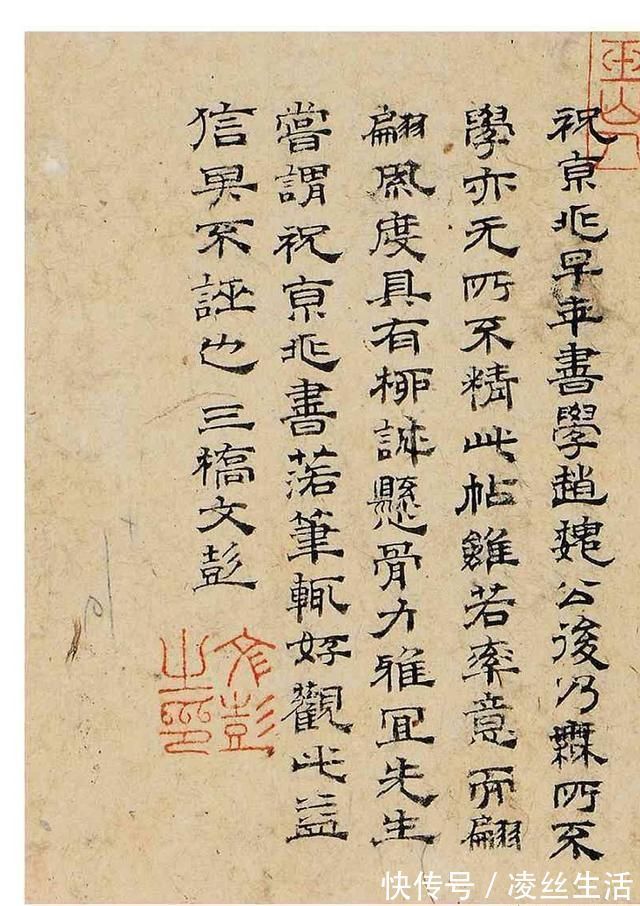 祝京兆早年書學趙魏公後乃無所不
學亦无所不精此帖雖若率意而翩
翩風度具有柳誠懸骨力雅宜先生
嘗謂祝京兆書落筆輒好觀此益
信其不誣也三橋文彭
文彭之印
快传号/凌丝生活